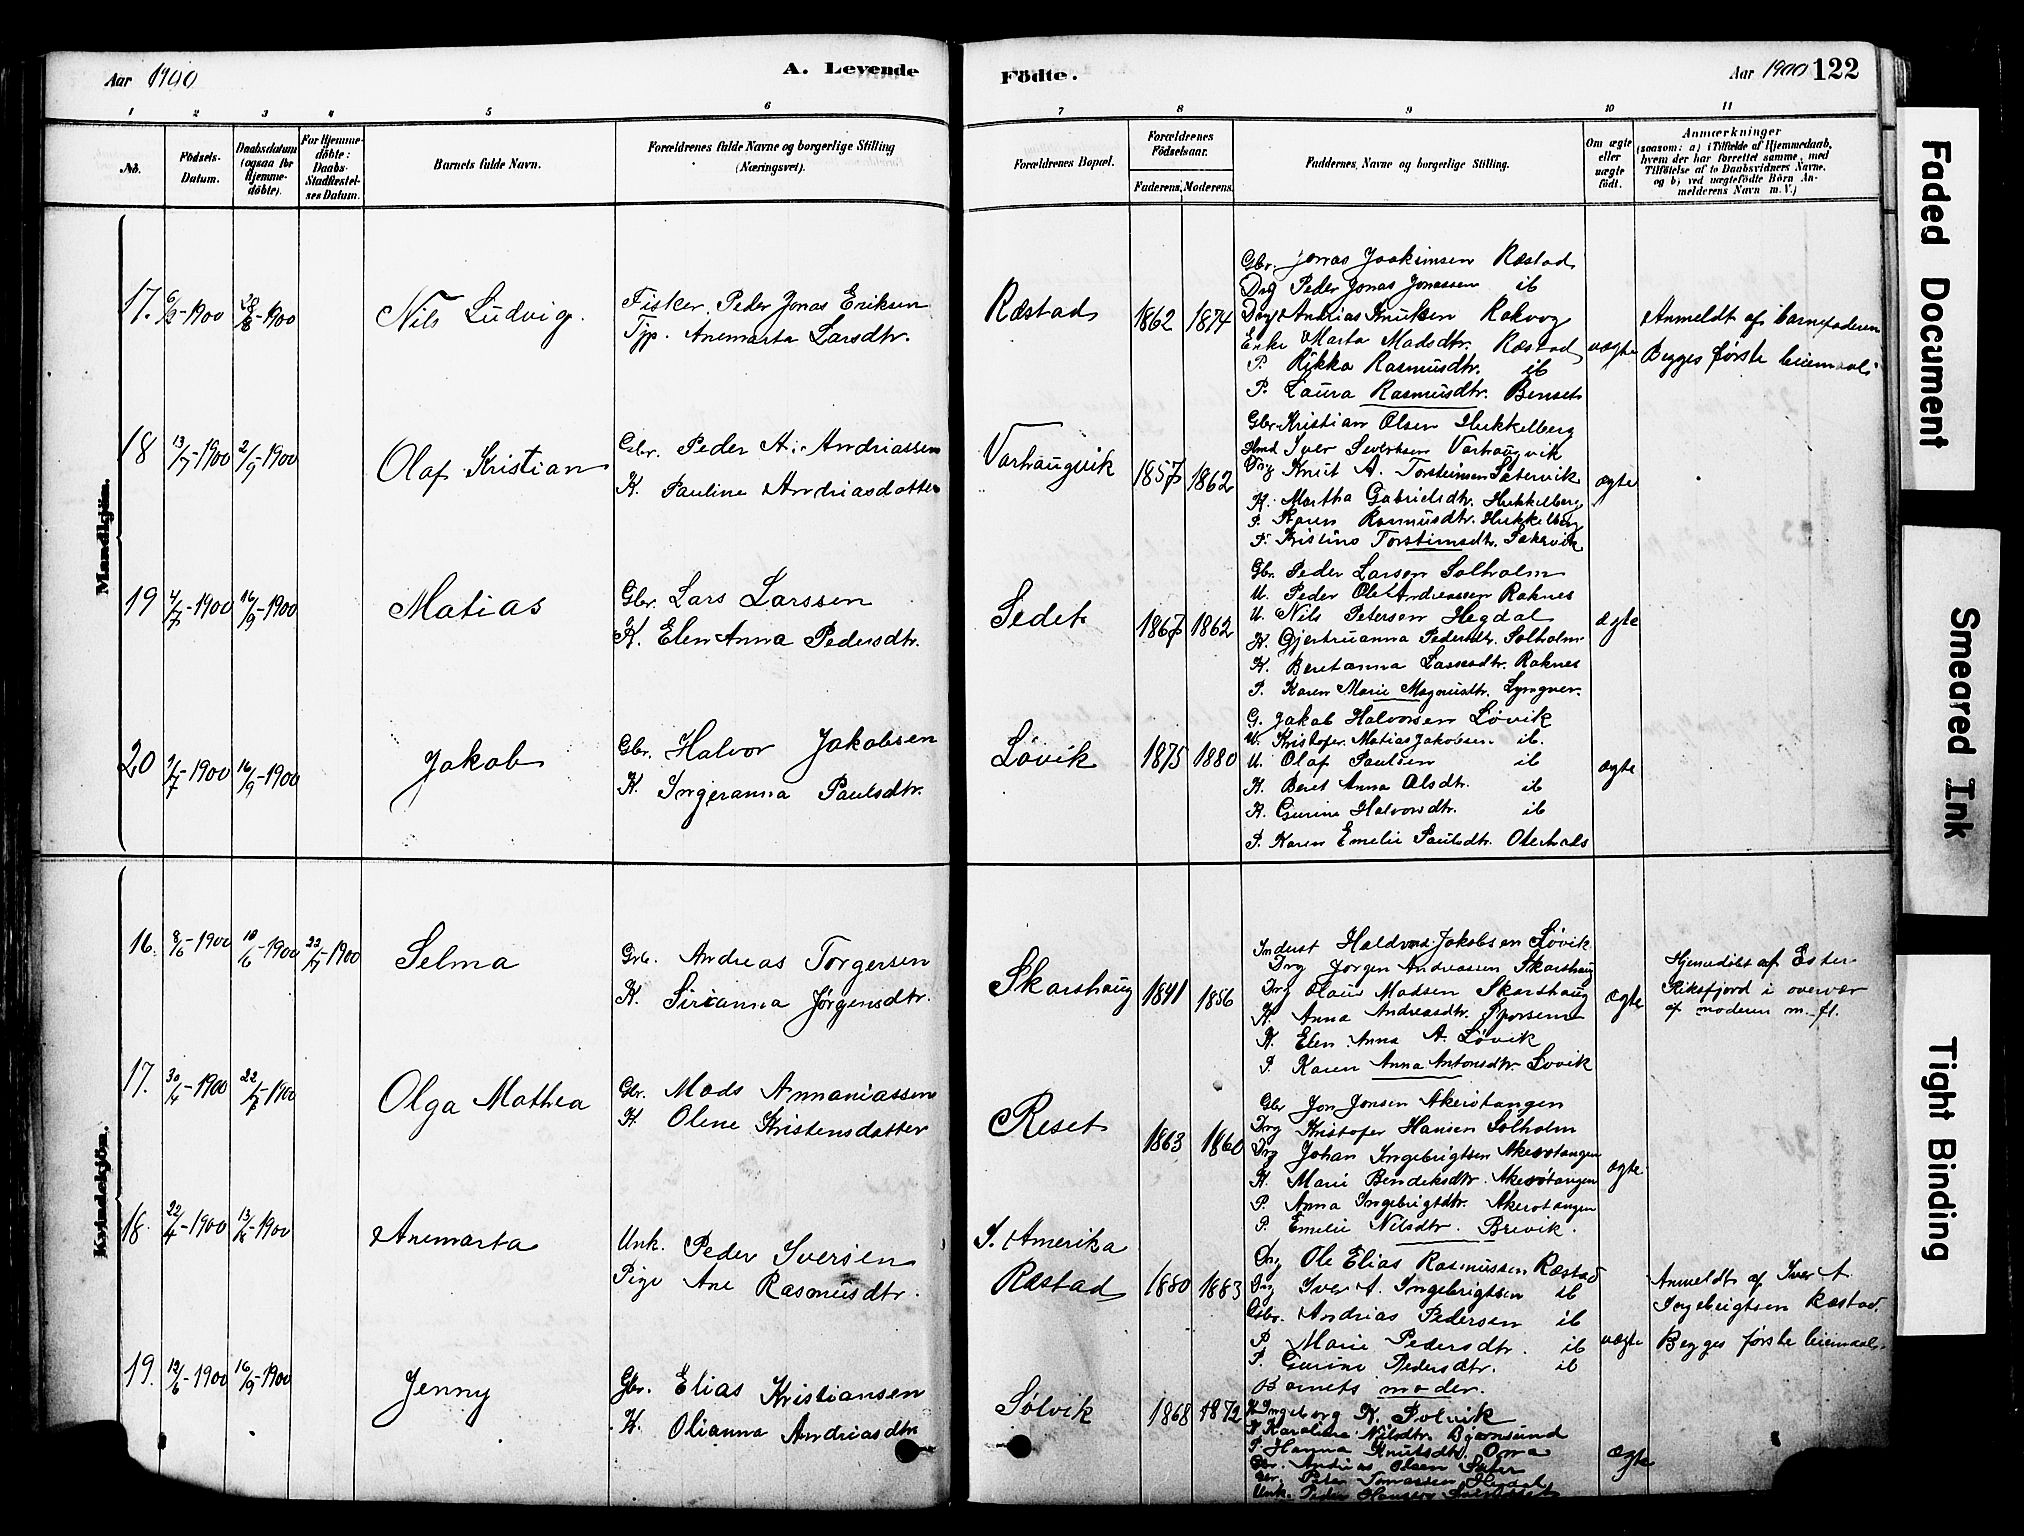 Aar 1900
A. Levende
Födte.
Aar 1900 122
1 2 3 4 5 6 7 8 9 10 11
No.
Födsels-Datum.
Daabsdatum (ogsaa for Hjemme-döbte).
For Hjemme-döbte: Daabs-Stadfæstel-ses Datum.
Barnets fulde Navn.
Forældrenes fulde Navne og borgerlige Stilling
(Næringsvei).
Forældrenes Bopæl.
Forældrenes Födselsaar.
Faderens. Moderens.
Faddernes, Navne og borgerlige Stilling.
Om ægte eller uægte födt.
Anmærkninger
(saasom: a) i Tilfælde af Hjemmedaab,
hvem der har forrettet samme, med
Tilföielse af to Daabsvidners Navne,
og b) ved uægtefödte Börn An-
melderens Navn m. V.)
Mandkjön.
17. 6/2-1900 26/8-1900
Nils Ludvig.
Fisker Peder Jonas Eriksen
Tjp. Anemarta Larsdtr.
Ræstad
1862 1874
Gbr. Jonas Joakimsen Ræstad
Drg Peder Jonas Jonassen ib
Drg Andrias Knutsen Rakvog
Enke Marta Madsdtr. Ræstad
P. Rikka Rasmusdtr. ib
P. Laura Rasmusdtr. Benset
uægte
Anmeldt af barnefaderen
Begges første leiermaal
18 13/7-1900 2/9-1900
Olaf Kristian
Gbr. Peder A. Andriassen
K. Pauline Andriasdatter
Varhaugvik
1857 1862
Gbr Kristian Olsen Hukkelberg
Iver Sivertsen Varhaugvik
Drg Knut A. Torsteinsen Sætervik
K. Martha Gabrielsdtr. Hukkelberg
P. Karen Rasmusdtr. Hukkelberg
P. Kristine Torsteinsdtr. Sætervik
ægte
19 4/7-1900 16/9-1900
Matias
Gbr. Lars Larssen
K. Elen Anna Pedersdtr.
Sedet
1867 1862
Gbr. Peder Larsen Solholm
U. Peder Ole Andreassen Raknes
U. Nils Petersen Hegdal
K. Gjertruanna Pedersdtr. Solholm
K. Beretanna Larsesdtr. Raknes
P. Karen Marie Magnusdtr. Lyngver.
ægte
20 7/7-1900 16/9-1900
Jakob
Gbr. Halvor Jakobsen
K. Ingeranna Paulsdtr.
Løvik
1875 1880
G. Jakob Halvorsen Løvik
U. Kristofer Matias Jakobsen ib.
U. Olaf Paulsen ib
K. Beret Anna Olsdtr. ib
K. Gurine Halvorsdtr. ib
P. Karen Emelie Paulsdtr.
ægte
Kvindekjön.
16. 8/6-1900 10/6-1900 22/7-1900
Selma
Grb. Andreas Torgersen
K. Sirianna Jørgensdtr.
Skarshaug
1841 1856
Inderst Haldvard Jakobsen Løvik
Drg Jørgen Andreassen Skarshaug
Drg Olaus Madsen Skarshaug
K. Anna Andreasdtr.
K. Elen Anna A. Løvik
P. Karen Anna Antonsdtr. Løvik
ægte
Hjemmedøbt af Ester
Riksfjord i overvær
af moderen m. fl.
17. 30/4-1900 22/7-1900
Olga Mathea
Gbr. Mads Annaniassen
K Olene Kristensdatter
Reset
1863 1860
Gbr Jon Jonsen Akerøtangen
Drg Kristofer Hansen Solholm
Drg Johan Ingebrigtsen Akerøtangen
K. Marie Bendeksdtr. Akerøtangen
P. Anna Ingebrigtdtr. Akerøtangen
P. Emelie Nilsdtr. Brevik.
ægte
18. 22/4-1900 13/5-1900
Anemarta
Unk. Peder Iversen
Pige Ane Rasmusdtr.
S. Amerika
Ræstad
1880 1883
Drg Ole Elias Rasmussen Ræstad
Drg Iver A. Ingebrigtsen ib
Gbr. Andrias Pedersen ib
P. Marie Pedersdtr. ib
P. Gurine Pedersdtr. ib
Barnets moder.
uægte
Anmeldt af Iver A
Ingebrigtsen Ræstad.
Begges første leiermaal.
19. 12/6-1900 16/9-1900
Jenny
Gbr. Elias Kristiansen
K. Olianna Andriasdtr
Sølvik
1868 1872
K Ingeborg K. Solvik
K Karoline Nilsdtr. Bjørnsund
P. Hanna Knutsdtr. Ona
Gbr. Andrias Olsen Sæter
Gbr. Peter Tomassen
Unk. Peder Hansen
ægte
Faded Document
Smeared Ink
Tight Binding